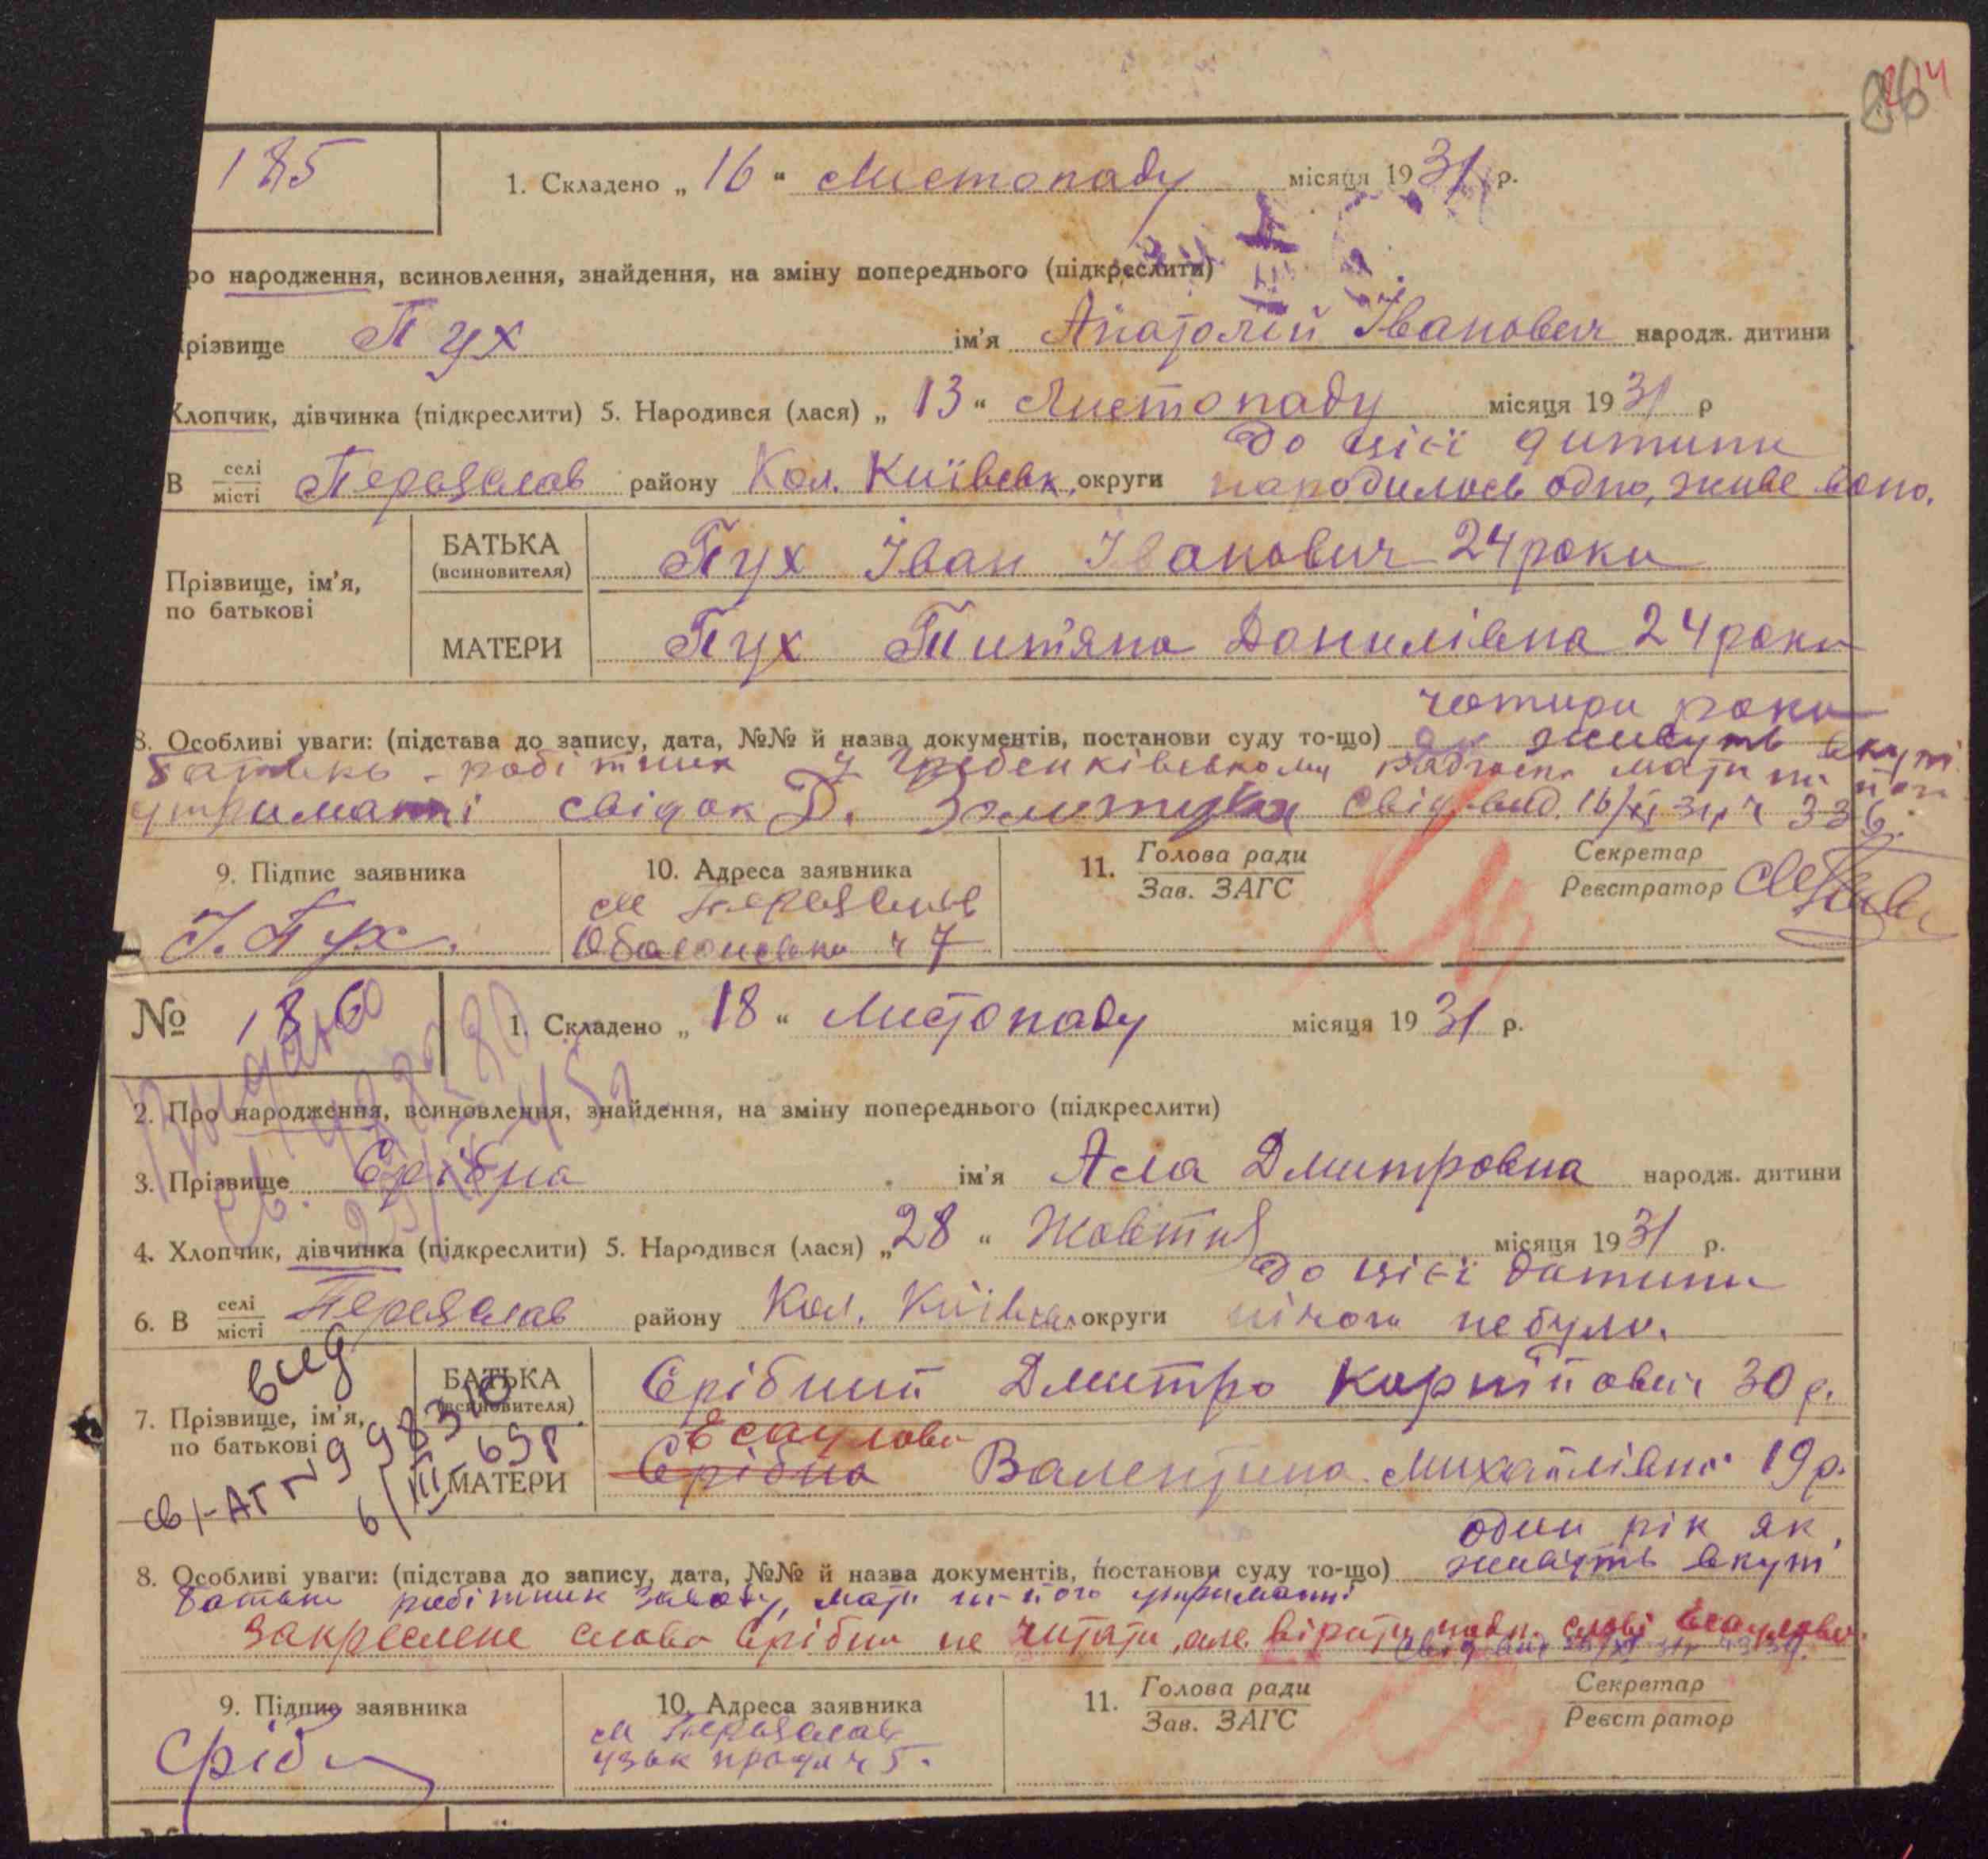 185
1. Складено „ 16 " Листопаду місяця 1931 р.
ро народження, всиновлення, знайдення, на зміну попереднього (підкреслити)
різвище Пух ім'я Анатолій Іванович народж. дитини
Хлопчик, дівчинка (підкреслити) 5. Народився (лася) „ 13 " Листопаду місяця 1931 р
до цієї дитини
В селі місті Переяслав району Кол. Київськ. округи народилось одно, живе воно.
Прізвище, ім'я, по батькові
БАТЬКА (всиновителя) Пух Іван Іванович 24 роки
МАТЕРИ Пух Тит'яна Данилівна 24 роки
чотири роки
8. Особливі уваги: (підстава до запису, дата, №№ й назва документів, постанови суду то-що) як живуть вкупі
батько - робітник у Гребенківському мати на його
утриманні свідок Д. Свід. вид. 16/XI 31 р. ч 336.
9. Підпис заявника
10. Адреса заявника
11. Голова ради Зав. ЗАГС
Секретар Реєстратор
І. Пух.
м Переяслав
ч 7
№ 186
1. Складено „ 18 " Листопаду місяця 1931 р.
2. Про народження, всиновлення, знайдення, на зміну попереднього (підкреслити)
3. Прізвище Срібна ім'я Ала Дмитровна народж. дитини
4. Хлопчик, дівчинка (підкреслити) 5. Народився (лася) „ 28 " Жовтня місяця 1931 р.
до цієї дитини
6. В селі місті Переяслав району Кол. Київськ округи нікого небуло.
7. Прізвище, ім'я, по батькові
БАТЬКА (всиновителя) Срібний Дмитро Карпович 30 р.
Есаулова
МАТЕРИ Срібна Валентина Михайлівна 19 р.
один рік як
8. Особливі уваги: (підстава до запису, дата, №№ й назва документів, постанови суду то-що) живуть вкупі
батько робітник заводу, мати на його утриманні
Закреслене слово Срібна не читати, але вірити слові Есаулова.
9. Підпис заявника
10. Адреса заявника
11. Голова ради Зав. ЗАГС
Секретар Реєстратор
Срібн
м Переяслав
ч 5.